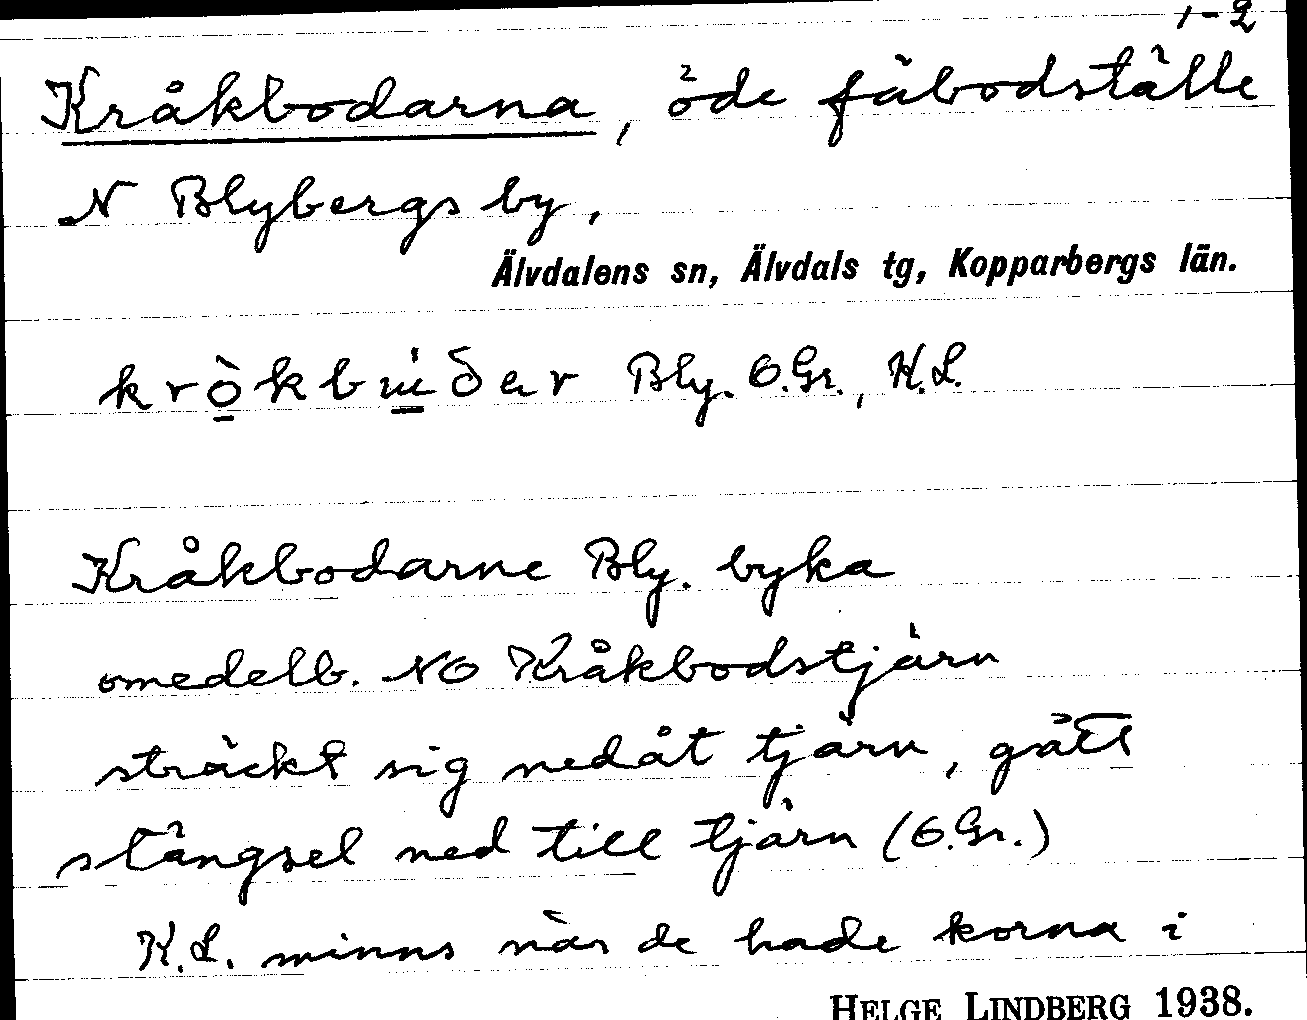 1-2
Kråkbodarna, öde fäbodställe
N Blybergs by,
Älvdalens sn, Älvdals tg, Kopparbergs län.
Bly. O.Gr., K.L.
Kråkbodarne Bly. byka
omedelb. NO Kråkbodstjärn
sträckt sig nedåt tjärn, gått
stängsel ned till tjärn (O.Gr.)
K.L. minns när de hade korna i
HELGE LINDBERG 1938.